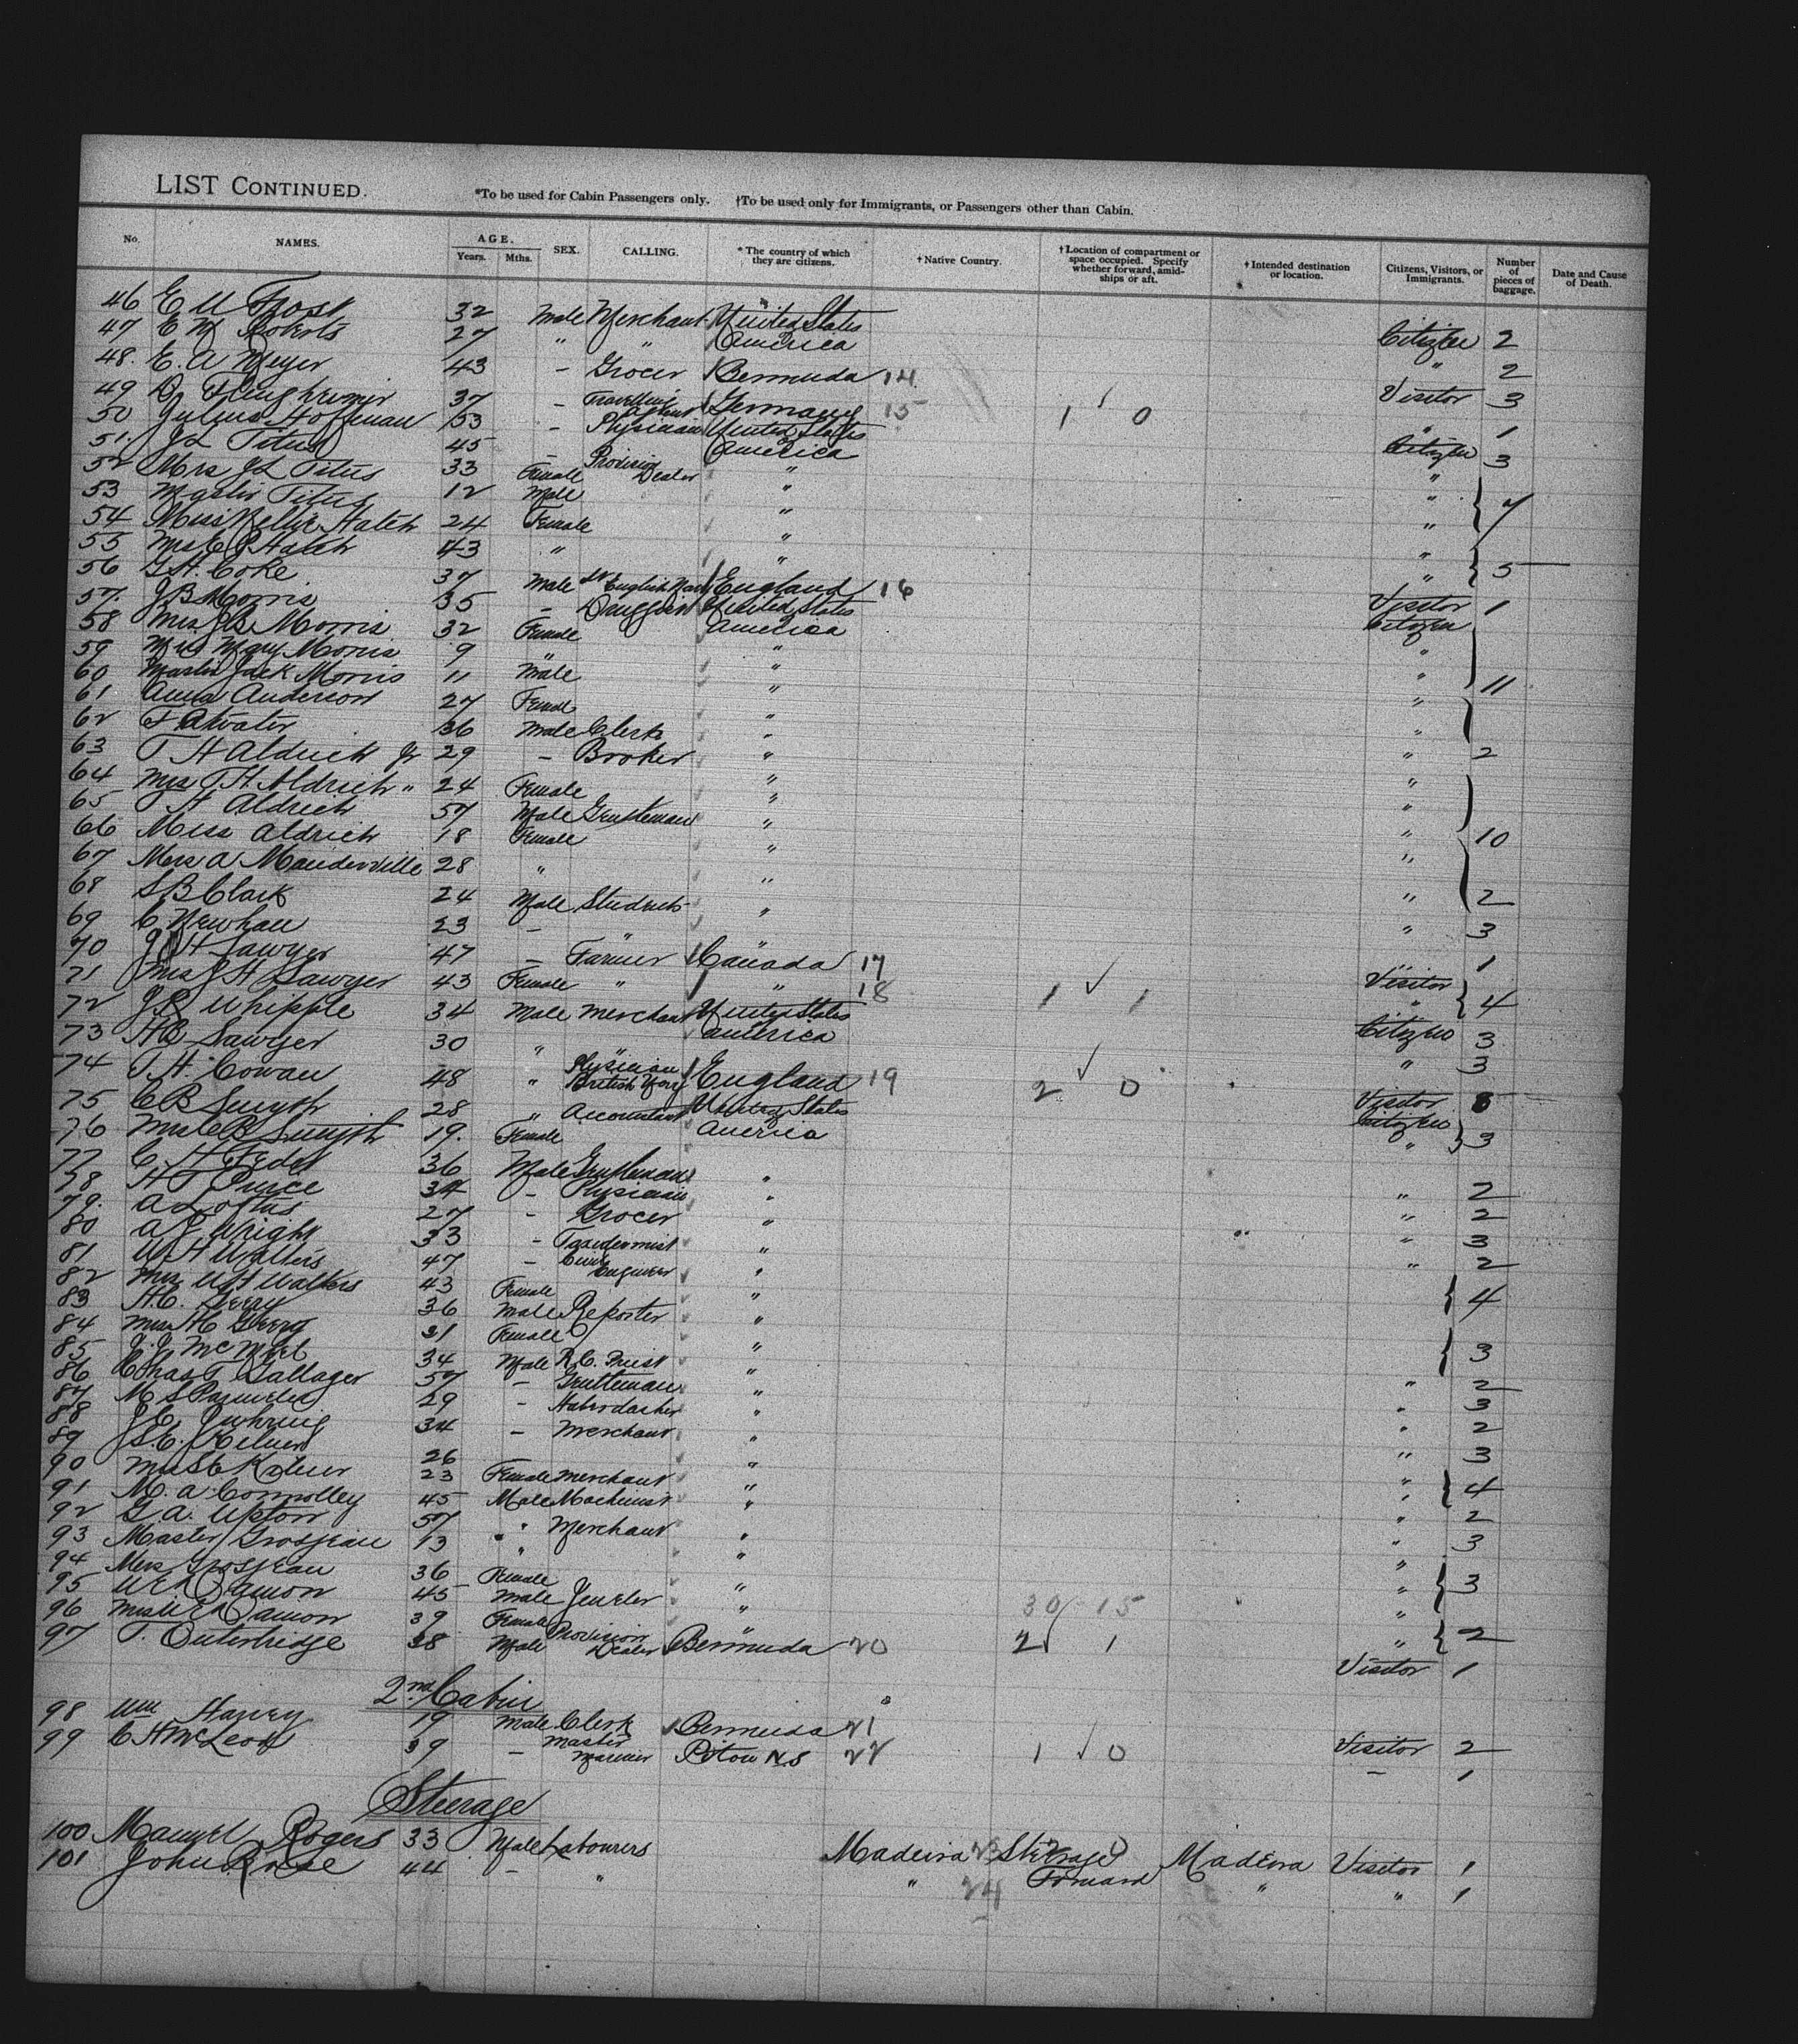 LIST CONTINUED.
*To be used for Cabin Passengers only. †To be used only for Immigrants, or Passengers other than Cabin.
No. NAMES. AGE. Years. Mths. SEX. CALLING. * The country of which they are citizens. † Native Country. † Location of compartment or space occupied. Specify whether forward, amidships or aft. † Intended destination or location. Citizens, Visitors, or Immigrants. Number of pieces of baggage. Date and Cause of Death.
46 E U Frost 32 Male Merchant United States America Citizen 2
47 E M Roberts 27 " " " 2
48. E. A Meyer 43 - Grocer Bermuda 14 Visitor 3
49 D. 37 - Travelling Agent Germany 15 1 0 " 1
50 Julius Hoffman 53 - Physician United States America Citizen 3
51. J L Titus 45 - Provision Dealer " "
52 Mrs J L Titus 33 Female " " 7
53 Master Titus 12 Male " "
54 Miss Nellie Hatch 24 Female " "
55 Mrs E P Hatch 43 " " " 5
56 G H. Coke 37 Male English Navy England 16 Visitor 1
57. J B Morris 35 - Druggist United States America Citizen
58 Mrs J B Morris 32 Female " "
59 Miss Mary Morris 9 " " "
60 Master Jack Morris 11 Male " " 11
61 Anna Anderson 27 Female " "
62 F Atwater 36 Male Clerk " " 2
63 T H Aldrich Jr 29 - Broker " "
64 Mrs T H. Aldrich " 24 Female " "
65 T H Aldrich 57 Male Gentleman " "
66 Miss Aldrich 18 Female " " 10
67 Mrs A Manderville 28 " " "
68 S B Clark 24 Male Student " " 2
69 C Newhall 23 - " " 3
70 J H Sawyer 47 - Farmer Canada 17 Visitor 1
71 Mrs J H Sawyer 43 Female " " 18 1 1 " 4
72 J R Whipple 34 Male Merchant United States America Citizen 3
73 H C Sawyer 30 " " " 3
74 T. H. Cowan 48 " Physician British Navy England 19 2 0 Visitor
75 C B Smyth 28 " Accountant United States America Citizen
76 Mrs C B Smyth 19. Female " 3
77 36 Male Gentleman " " 2
78 H T Pierce 34 - Physician " " 2
79. A Loftus 27 - Grocer " " 3
80 A J Wright 33 - Taxidermist " " 2
81 W H Walters 47 - Civil Engineer "
82 Mrs W H Walters 43 Female " 4
83 H. C. Gerry 36 Male Reporter "
84 Mrs H C Gerry 31 Female " 3
85 J. J. McNeil 34 Male R. C. Priest " " 2
86 Chas T Gallager 57 - Gentleman " " 3
87 M S Parmelee 29 - Haberdasher " " 2
88 34 - Merchant " " 3
89 26 " "
90 23 Female Merchant " " 4
91 M. A Connolley 45 Male Machinist " " 2
92 G A. Upton 57 " Merchant " " 3
93 Master Grosjean 13 " " "
94 Mrs Grosjean 36 Female " " 3
95 W E Damon 45 Male Jeweler " "
96 Mrs W E Damon 39 Female " 30 15 " 2
97 T. Outerbridge 38 Male Provision Dealer Bermuda 20 2 1 Visitor 1
2nd Cabin
98 Wm Haney 19 Male Clerk Bermuda 21 Visitor 2
99 C H McLeod 39 - Master Mariner Pictou N.S 22 1 0 - 1
Steerage
100 Manuel Rogers 33 Male Labourers Madeira 23 Steerage Forward Madeira Visitor 1
101 John Rose 44 - " " 24 " " 1